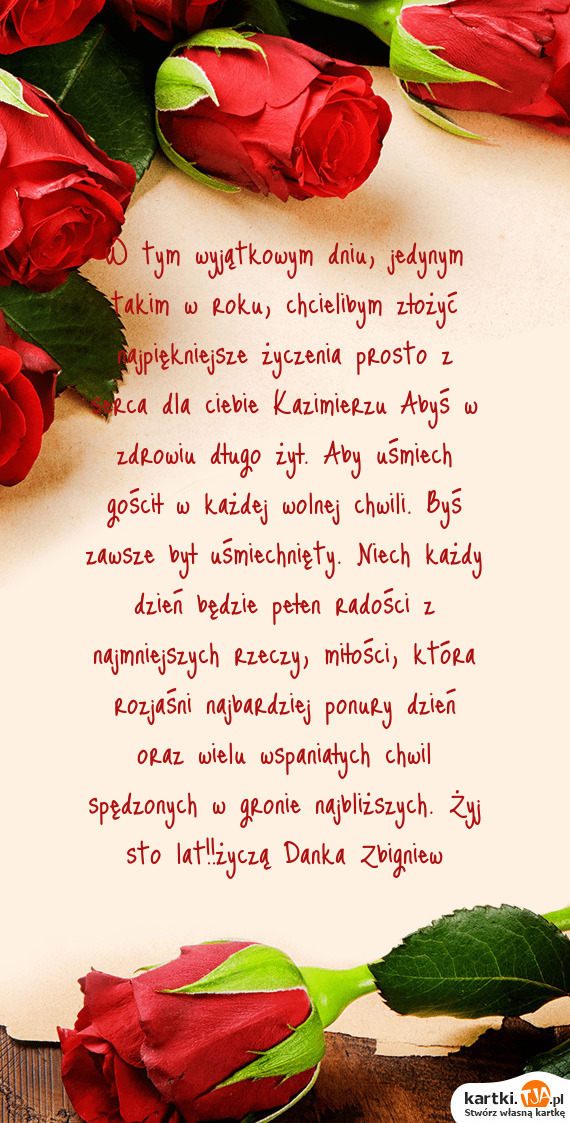 W tym wyjątkowym dniu, jedynym
takim w roku, chcielibym złożyć
najpiękniejsze życzenia prosto z
serca dla ciebie Kazimierzu Abyś w
zdrowiu długo żył. Aby uśmiech
gościł w każdej wolnej chwili. Byś
zawsze był uśmiechnięty. Niech każdy
dzień będzie pełen radości z
najmniejszych rzeczy, miłości, która
rozjaśni najbardziej ponury dzień
oraz wielu wspaniałych chwil
spędzonych w gronie najbliższych. Żyj
sto lat!!życzą Danka Zbigniew
kartki.TJA.pl
Stwórz własną kartkę